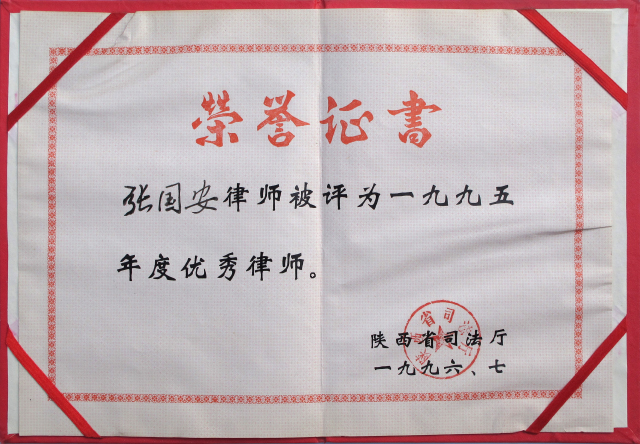 荣誉证书
张国安律师被评为一九九五
年度优秀律师。
陕西省司法厅
一九九六、七
陕西省司法厅